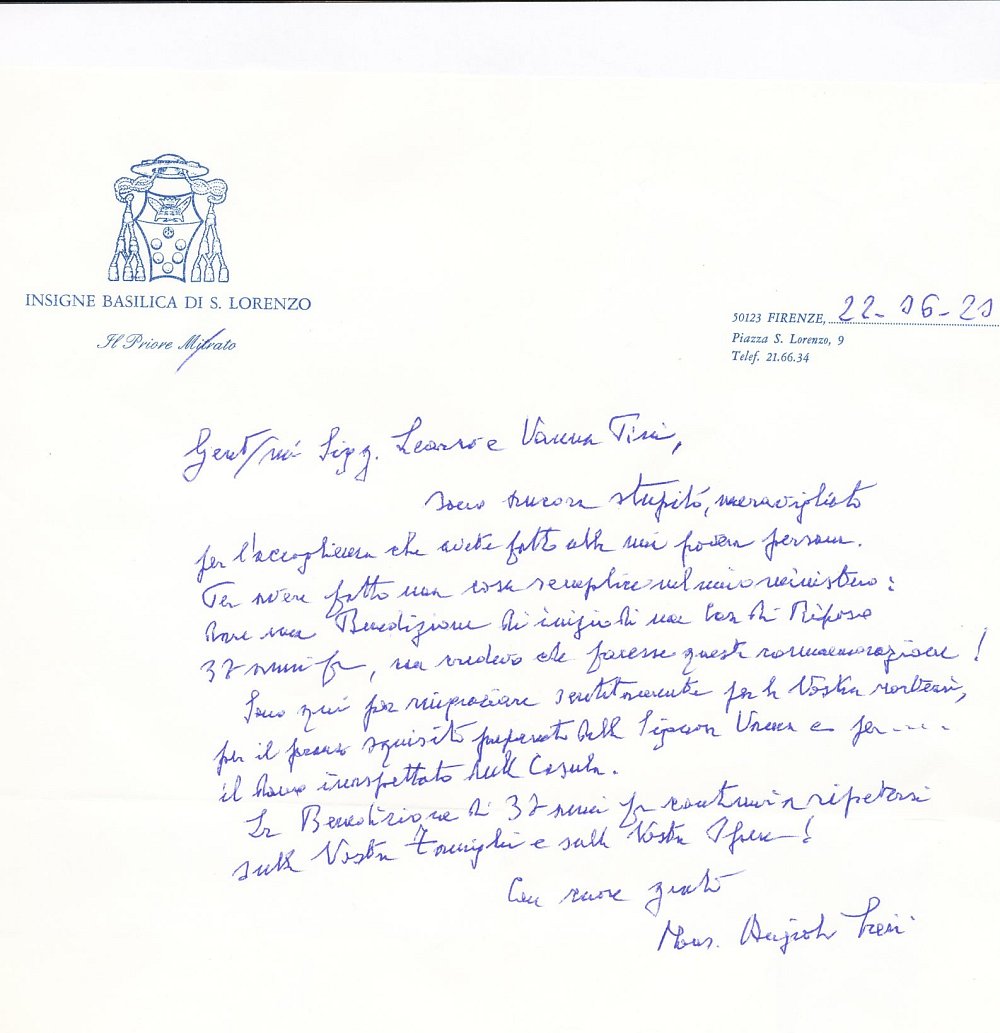 INSIGNE BASILICA DI S. LORENZO
Il Priore Mitrato
50123 FIRENZE, 22-06-20
Piazza S. Lorenzo, 9
Telef. 21.66.34
Gent/mi Sigg. e Vanna
sono ancora stupito, meravigliato
per l'accoglienza che avete fatto alla mia povera persona.
Per avere fatto una cosa semplice nel mio ministero:
dare una Benedizione di inizio di una Casa di Riposo
37 anni fa, non credevo che facesse questa commemorazione!
Sono qui per ringraziare sentitamente per la Vostra cortesia,
per il pranzo squisito preparato dalla Signora Vanna e per....
il dono inaspettato della Casula.
La Benedizione di 37 anni fa continui a ripetersi
sulla Vostra Famiglia e sulla Vostra Opera!
Con cuore grato
Mons. Angiolo